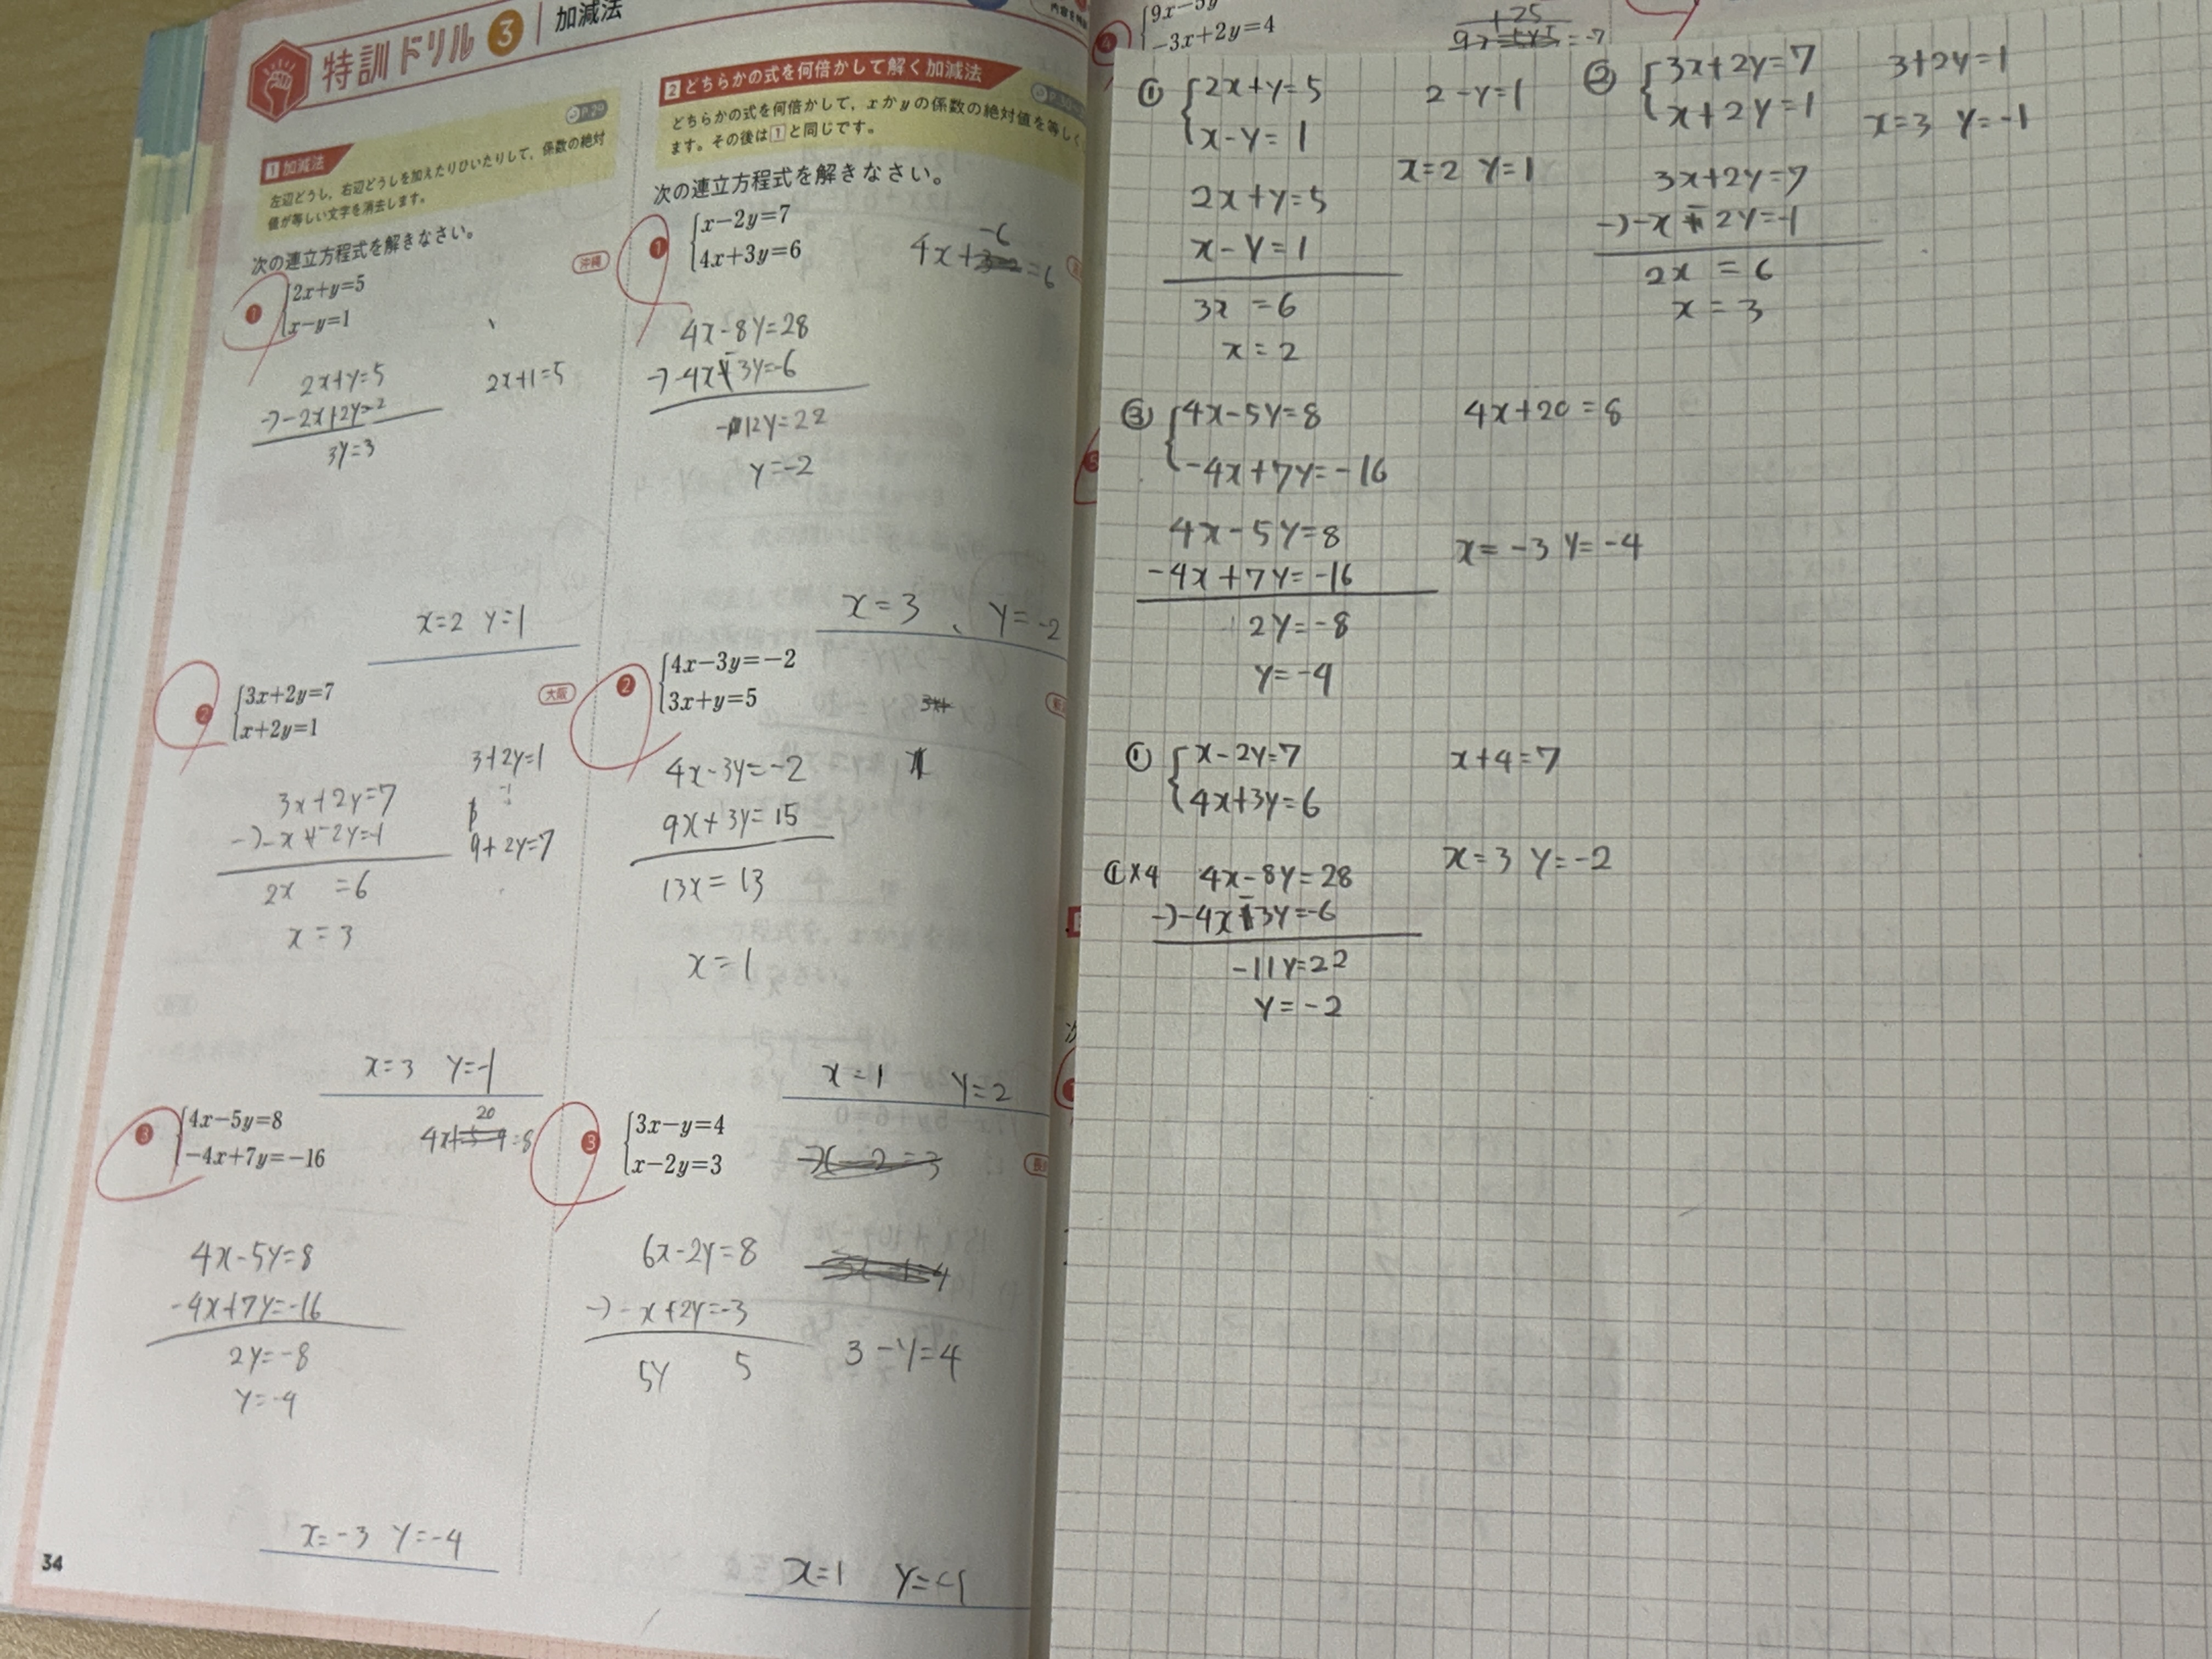 特訓ドリル 3 加減法
P.29
1 加減法
左辺どうし，右辺どうしを加えたりひいたりして，係数の絶対
値が等しい文字を消去します。
次の連立方程式を解きなさい。
沖縄
1
2x+y=5
x−y=1
2x+y=5
-)-2x+2y=-2
3y=3
2x+1=5
x=2 y=1
2
3x+2y=7
x+2y=1
大阪
3+2y=1
-1
9+2y=7
3x+2y=7
-)-x-2y=-1
2x =6
x=3
x=3 y=-1
3
4x−5y=8
−4x+7y=−16
20
4x+ =8
4x-5y=8
-4x+7y=-16
2y=-8
y=-4
x=-3 y=-4
34
2 どちらかの式を何倍かして解く加減法
どちらかの式を何倍かして，xかyの係数の絶対値を等しく
ます。その後は1と同じです。
次の連立方程式を解きなさい。
1
x−2y=7
4x+3y=6
-6
4x+ =6
4x-8y=28
-)-4x-3y=-6
-12y=22
y=-2
x=3、y=-2
2
4x−3y=−2
3x+y=5
3x+
4x-3y=-2
9x+3y=15
13x=13
x=1
x=1 y=2
3
3x−y=4
x−2y=3
x-2=3
6x-2y=8
-)-x+2y=-3
5y 5
3-y=4
x=1 y=-1
4
9x−5y
−3x+2y=4
+25
=-7
① 2x+y=5
x-y=1
2-y=1
x=2 y=1
2x+y=5
x-y=1
3x=6
x=2
② 3x+2y=7
x+2y=1
3+2y=1
x=3 y=-1
3x+2y=7
-)-x-2y=-1
2x =6
x=3
③ 4x-5y=8
-4x+7y=-16
4x+20=8
4x-5y=8
-4x+7y=-16
x=-3 y=-4
2y=-8
y=-4
① x-2y=7
4x+3y=6
x+4=7
x=3 y=-2
①×4 4x-8y=28
-)-4x-3y=-6
-11y=22
y=-2